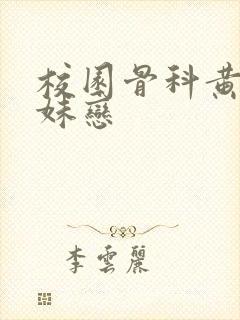 校園骨科黄
妹戀
李雲麗